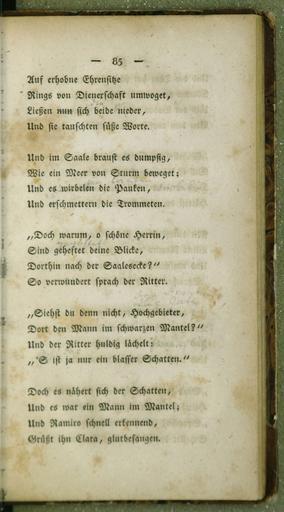 — 85 —
Auf erhobne Ehrensitze
Rings von Dienerschaft umwoget,
Ließen nun sich beide nieder,
Und sie tauschten süße Worte.
Und im Saale braust es dumpfig,
Wie ein Meer von Sturm beweget;
Und es wirbelen die Pauken,
Und erschmettern die Trommeten.
„Doch warum, o schöne Herrin,
Sind geheftet deine Blicke,
Dorthin nach der Saalesecke?“
So verwundert sprach der Ritter.
„Siehst du denn nicht, Hochgebieter,
Dort den Mann im schwarzen Mantel?“
Und der Ritter huldig lächelt:
„'S ist ja nur ein blasser Schatten.“
Doch es nähert sich der Schatten,
Und es war ein Mann im Mantel;
Und Ramiro schnell erkennend,
Grüßt ihn Clara, glutbefangen.